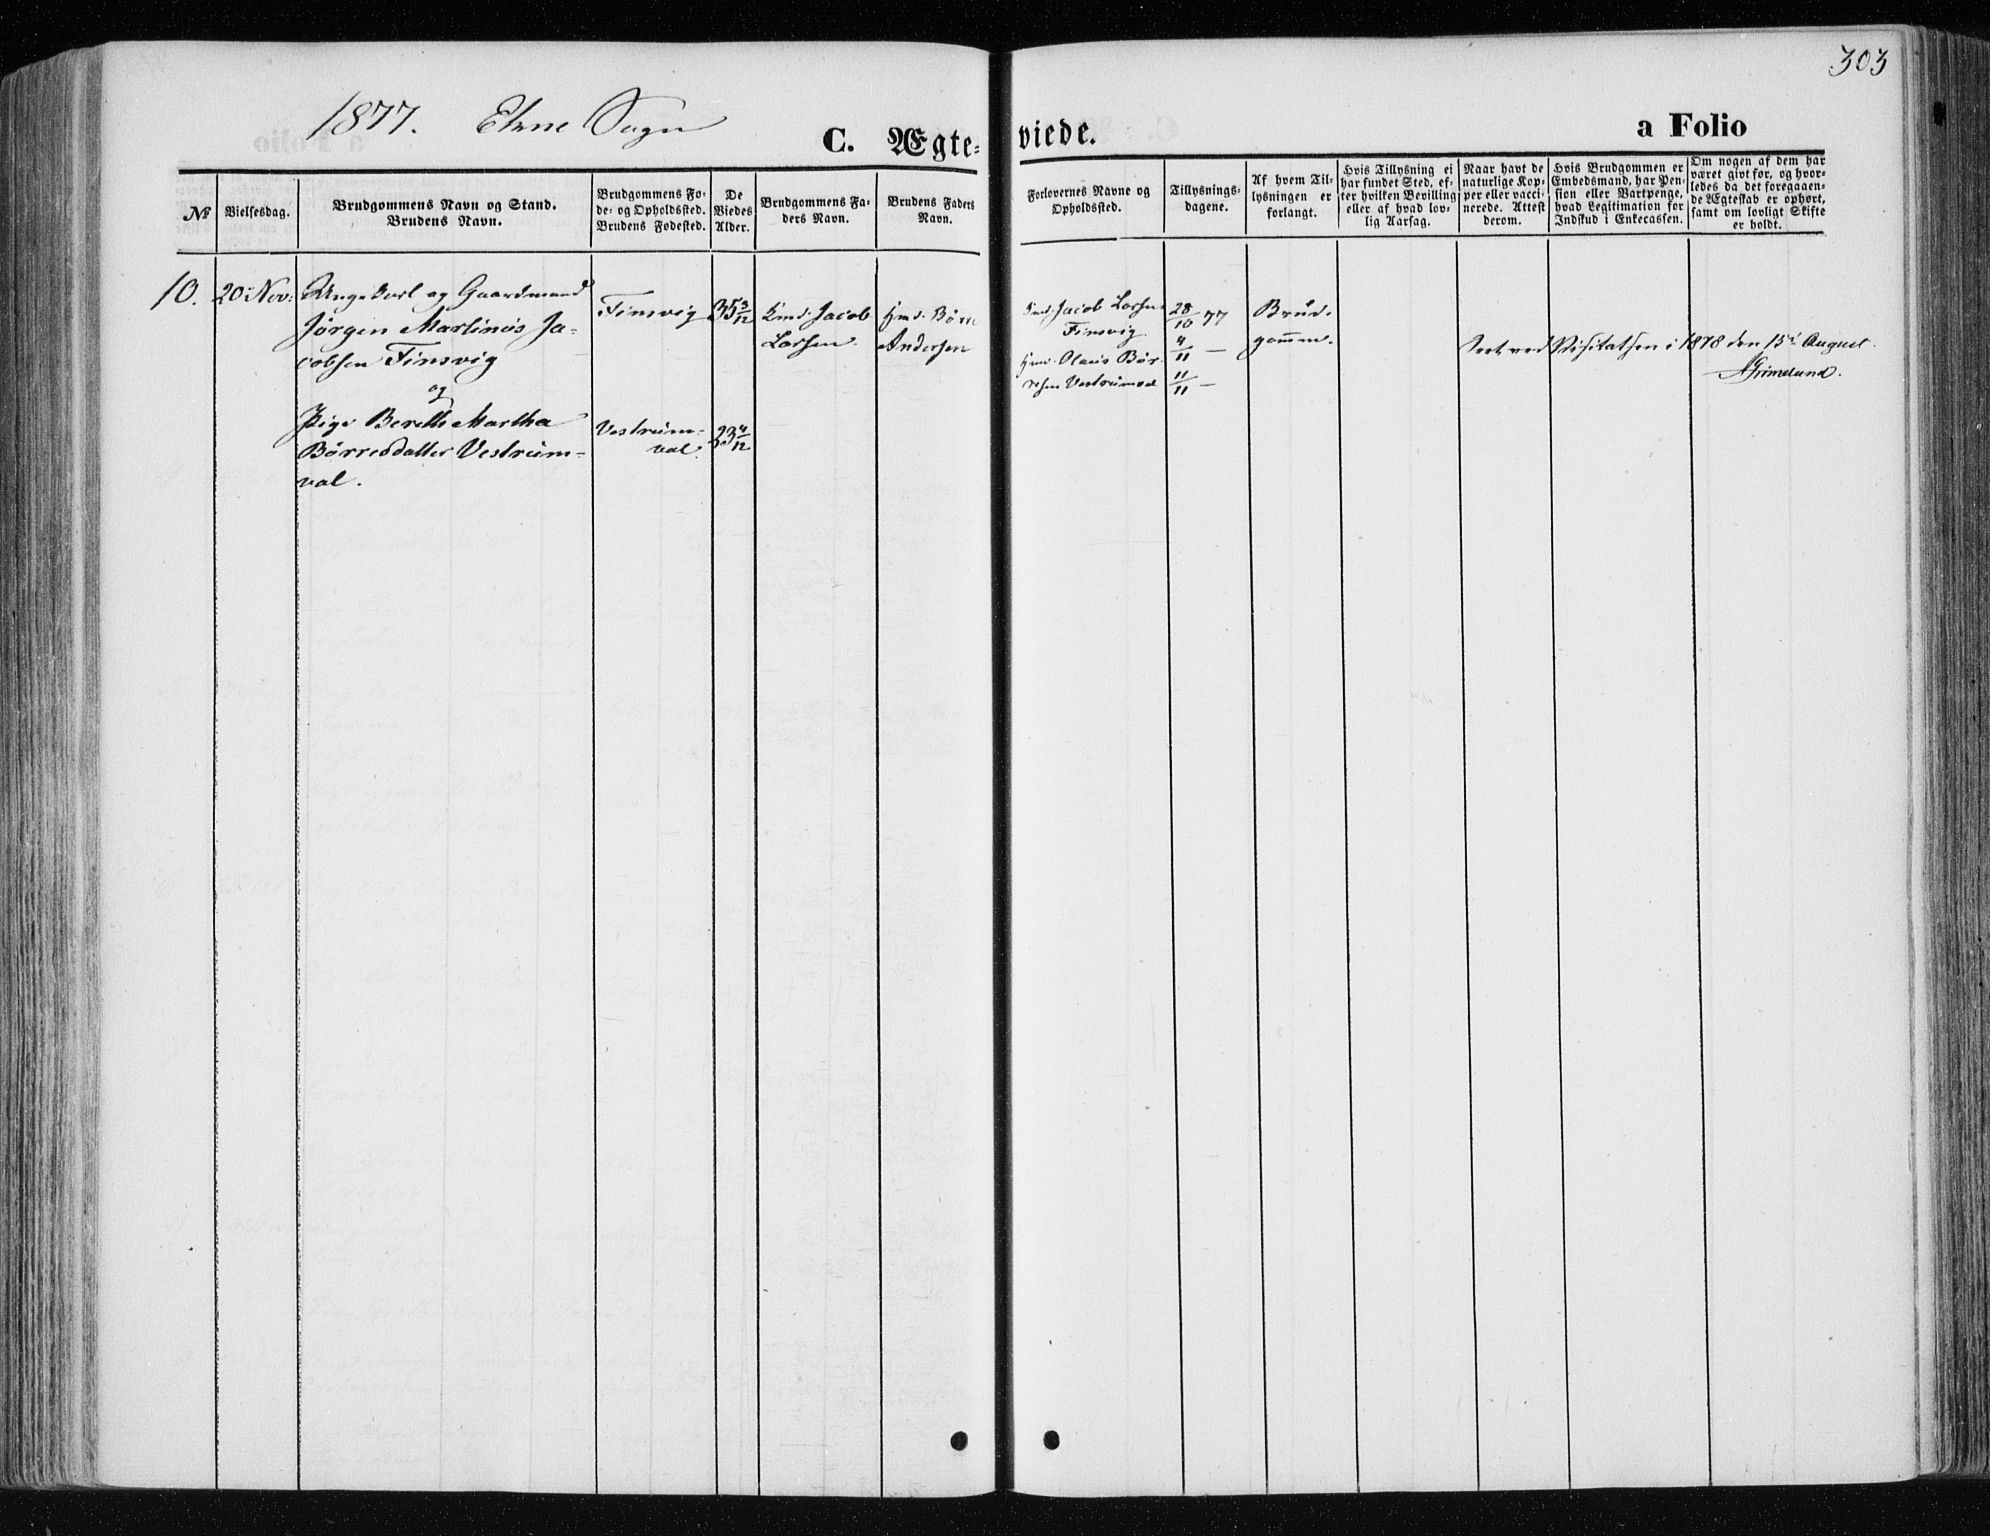 303
1877. Ekne Sogn
C. Ægte-
viede.
a Folio
№
Vielsesdag.
Brudgommens Navn og Stand.
Brudens Navn.
Brudgommens Fø-
de- og Opholdssted.
Brudens Fødested.
De
Viedes
Alder.
Brudgommens Fa-
ders Navn.
Brudens Faders
Navn.
Forlovernes Navne og
Opholdssted.
Tillysnings-
dagene.
Af hvem Til-
lysningen er
forlangt.
Hvis Tillysning ei
har fundet Sted, ef-
ter hvilken Bevilling
eller af hvad lov-
lig Aarsag.
Naar havt de
naturlige Kop-
per eller vacci-
nerede. Attest
derom.
Hvis Brudgommen er
Embedsmand, har Pen-
sion eller Vartpenge,
hvad Legitimation for
Indskud i Enkecassen.
Om nogen af dem har
været givt før, og hvor-
ledes da det foregaaen-
de Ægteskab er ophørt,
samt om lovligt Skifte
er holdt.
10.
20 Nov:
Ungekarl og Gaardmand
Jørgen Martinus Ja-
cobsen Finsvig
og
Pige Berette Martha
Børresdatter Vestrum-
val.
Finsvig
Vestrum-
val.
35 3/12
23 4/12
Hmd. Jacob
Larsen.
Hmd. Børre
Andersen
Hmd. Jacob Larsen
Finsvig
Hmd. Olaus Bør-
resen Vestrumval
28/10 77
4/11 —
11/11 —
Brud-
gommen.
Seet ved Visitatsen i 1878 den 15de August.
AGrimelund.